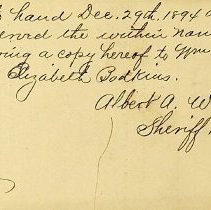 hand Dec. 29th. 1894
the within
a copy hereof to
Elizabeth Bodkins.
Albert A. W
Sheriff